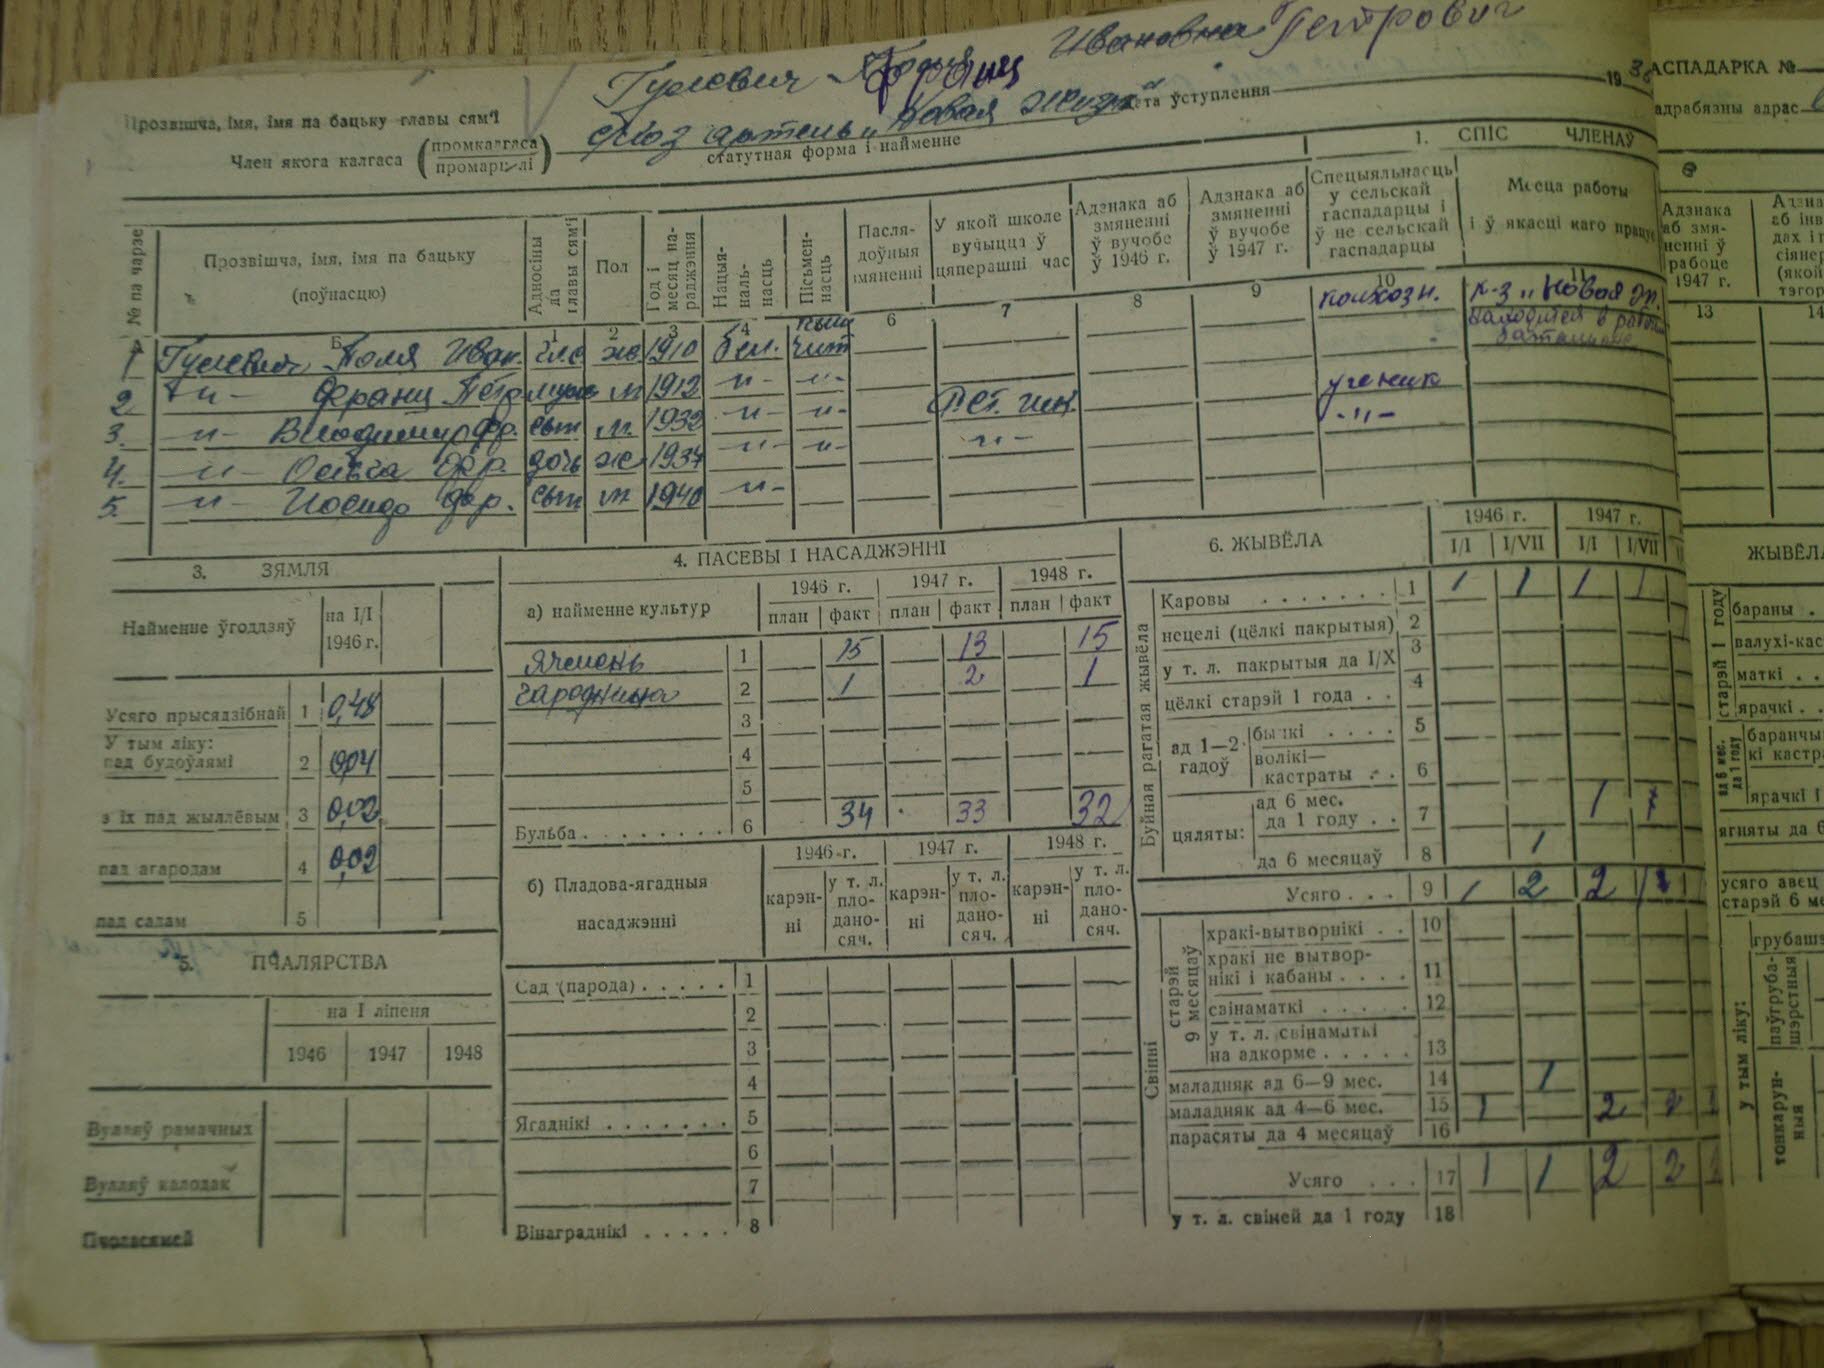 Гулевич Франц Ивановна Петрович
Прозвішча, імя, імя па бацьку главы сям'і
Дата ўступлення 19
Член якога калгаса (промкалгаса промарцелі) с/хоз артель „Новая Жизнь"
статутная форма і найменне
1. СПІС ЧЛЕНАЎ
№ па чарзе
Прозвішча, імя, імя па бацьку (поўнасцю)
Адносіны да главы сям'і
Пол
Год і месяц нараджэння
Нацыянальнасць
Пісьменнасць
Пасля-
доўныя
змяненні
У якой школе
вучыцца ў
цяперашні час
Адзнака аб
змяненні
ў вучобе
ў 1946 г.
Адзнака аб
змяненні
ў вучобе
ў 1947 г.
Спецыяльнасць
у сельскай
гаспадарцы і
ў не сельскай
гаспадарцы
Месца работы
і ў якасці каго працуе
А Б 1 2 3 4 6 7 8 9 10 11
1 Гулевич Поля Иван. гл.с ж 1910 бел. чит колхозн. к-з „Новая Ж.
находится в рабочем
батальоне
2 -"- Франц Петр муж м 1912 -"- -"-
3. -"- Владимир Фр. сын м 1932 -"- -"- шк. ученик
4. -"- Ольга Фр. дочь ж 1934 -"- -"- -"- -"-
5. -"- Иосиф Фр. сын м 1940 -"-
3. ЗЯМЛЯ
Найменне ўгоддзяў на I/I 1946 г.
Усяго прысядзібнай 1 0,48
У тым ліку:
пад будоўлямі 2 0,04
з іх пад жыллёвым 3 0,02
пад агародам 4 0,02
пад садам 5
5. ПЧАЛЯРСТВА
на I ліпеня
1946 1947 1948
Вулляў рамачных
Вулляў калодак
Пчоласямей
4. ПАСЕВЫ І НАСАДЖЭННІ
а) найменне культур 1946 г. 1947 г. 1948 г.
план факт план факт план факт
Ячмень 1 15 13 15
гародніна 2 1 2 1
3
4
5
Бульба 6 34 33 32
б) Пладова-ягадныя
насаджэнні
1946 г. 1947 г. 1948 г.
карэнні у т. л. пладаносяч. карэнні у т. л. пладаносяч. карэнні у т. л. пладаносяч.
Сад (парода) 1
2
3
4
Ягаднікі 5
6
7
Вінаграднікі 8
6. ЖЫВЁЛА 1946 г. 1947 г.
I/I I/VII I/I I/VII
Буйная рагатая жывёла
Каровы 1 1 1 1 1
нецелі (цёлкі пакрытыя) 2
у т. л. пакрытыя да I/X 3
цёлкі старэй 1 года 4
ад 1—2 гадоў
бычкі 5
волікі—
кастраты 6
цяляты:
ад 6 мес.
да 1 году 7 1
да 6 месяцаў 8 1
Усяго 9 1 2 2
Свінні
старэй 9 месяцаў
хракі-вытворнікі 10
хракі не вытвор-
нікі і кабаны 11
свінаматкі 12
у т. л. свінаматкі
на адкорме 13
маладняк ад 6—9 мес. 14 1
маладняк ад 4—6 мес. 15 1 2 2
парасяты да 4 месяцаў 16
Усяго 17 1 1 2 2
у т. л. свіней да 1 году 18
АСПАДАРКА №
адрабязны адрас
Адзнака
аб змя-
ненні ў
рабоце
1947 г.
13 14
ЖЫВЁЛА
старэй 1 году
бараны
валухі-кас
маткі
ярачкі
ад 6 мес. да 1 году
баранчы
кі кастра
ярачкі і
ягняты да 6
усяго авец
старэй 6 ме
у тым ліку:
грубаш
паўгруба-
шэрстныя
тонкарун-
ныя